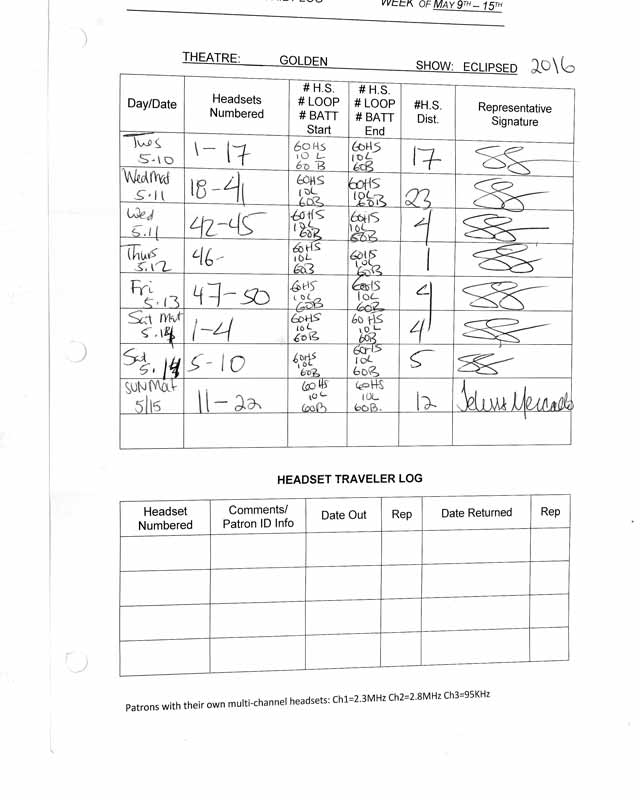 WEEK OF MAY 9TH – 15TH
THEATRE: GOLDEN SHOW: ECLIPSED 2016
Day/Date Headsets Numbered # H.S. # LOOP # BATT Start # H.S. # LOOP # BATT End #H.S. Dist. Representative Signature
Tues 5.10 1-17 60HS 10 L 60 B 60HS 10L 60B 17
Wed Mat 5.11 18-41 60HS 10L 60B 60HS 10L 60B 23
Wed 5.11 42-45 60HS 10L 60B 60HS 10L 60B 4
Thurs 5.12 46- 60HS 10L 60B 60HS 10L 60B 1
Fri 5.13 47-50 60HS 10L 60B 60HS 10L 60B 4
Sat Mat 5.14 1-4 60HS 10L 60B 60 HS 10L 60B 4
Sat 5.14 5-10 60HS 10L 60B 60HS 10L 60B 5
SUN Mat 5/15 11-22 60HS 10L 60B 60HS 10L 60B. 12
HEADSET TRAVELER LOG
Headset Numbered Comments/ Patron ID Info Date Out Rep Date Returned Rep
Patrons with their own multi-channel headsets: Ch1=2.3MHz Ch2=2.8MHz Ch3=95KHz